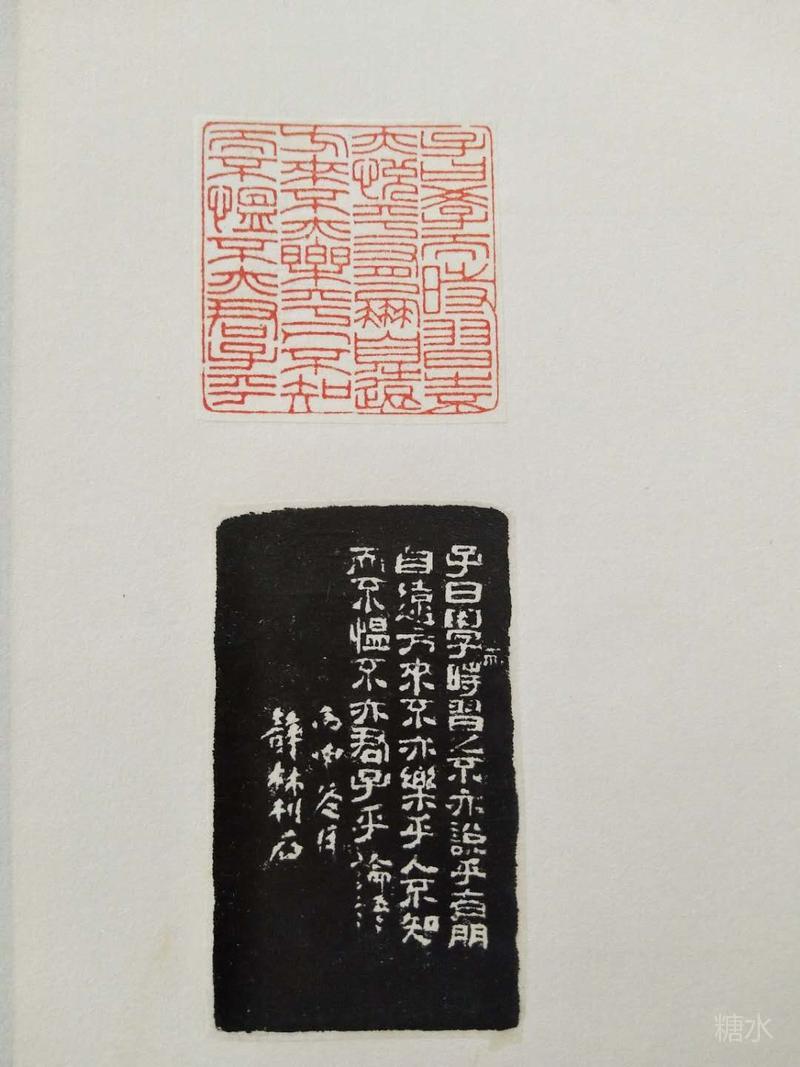 子曰學而時習之不
亦悅乎有朋自遠
方來不亦樂乎人不知
而不慍不亦君子乎
子曰學而時習之不亦說乎有朋
自遠方來不亦樂乎人不知
而不慍不亦君子乎論語
薛林利
糖水